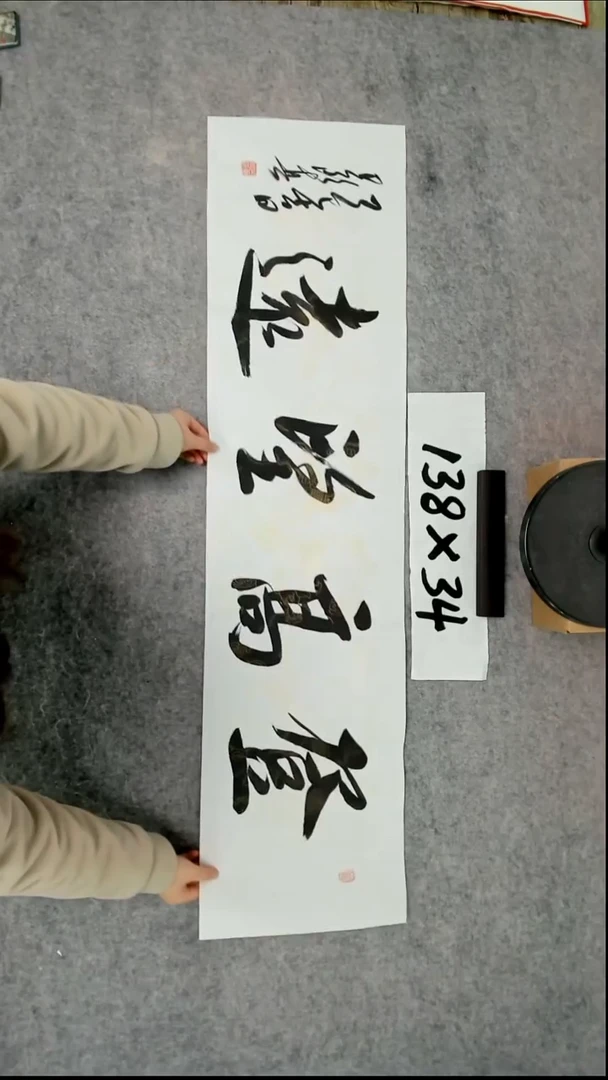 登高望遠
138×34